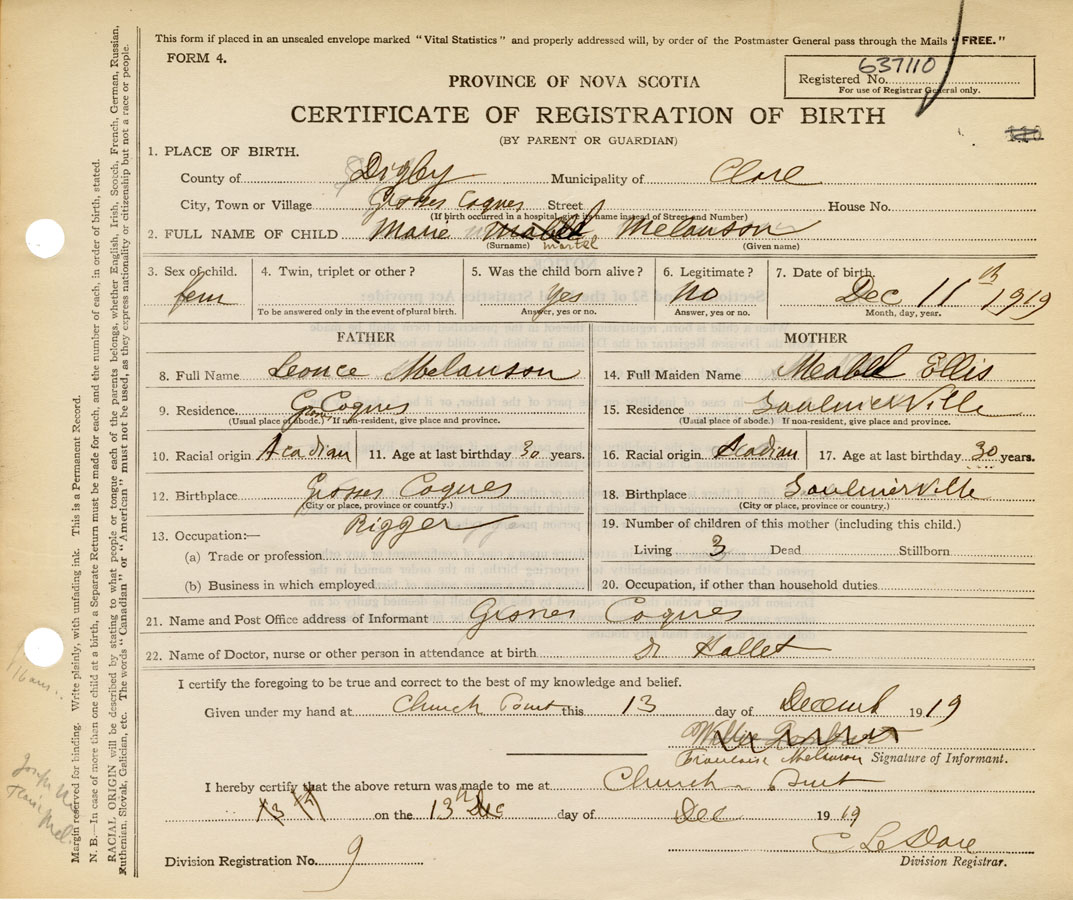 This form if placed in an unsealed envelope marked “Vital Statistics” and properly addressed will, by order of the Postmaster General pass through the Mails “FREE.”
FORM 4.
Registered No. 637110
For use of Registrar General only.
PROVINCE OF NOVA SCOTIA
CERTIFICATE OF REGISTRATION OF BIRTH
(BY PARENT OR GUARDIAN)
1. PLACE OF BIRTH.
County of Digby Municipality of Clare
City, Town or Village Grosses Coques Street House No.
(If birth occurred in a hospital, give its name instead of Street and Number)
2. FULL NAME OF CHILD Marie Mabel Melanson
(Surname) martel (Given name)
3. Sex of child. fem
4. Twin, triplet or other?
To be answered only in the event of plural birth.
5. Was the child born alive? Yes
Answer, yes or no.
6. Legitimate? No
Answer, yes or no.
7. Date of birth. Dec 11th 1919
Month, day, year.
FATHER
8. Full Name Leonce Melanson
9. Residence. Gross Coques
(Usual place of abode.) If non-resident, give place and province.
10. Racial origin Acadian 11. Age at last birthday 30 years.
12. Birthplace Grosses Coques
(City or place, province or country.)
13. Occupation:— Rigger
(a) Trade or profession
(b) Business in which employed
MOTHER
14. Full Maiden Name Meabel Ellis
15. Residence Saulnierville
(Usual place of abode.) If non-resident, give place and province.
16. Racial origin Acadian 17. Age at last birthday 30 years.
18. Birthplace Saulnierville
(City or place, province or country.)
19. Number of children of this mother (including this child.)
Living 3 Dead Stillborn
20. Occupation, if other than household duties
21. Name and Post Office address of Informant Grosses Coques
22. Name of Doctor, nurse or other person in attendance at birth Dr Hallet
I certify the foregoing to be true and correct to the best of my knowledge and belief.
Given under my hand at Church Point this 13 day of Decemb 1919
Francoise Melanson Signature of Informant.
I hereby certify that the above return was made to me at Church Point
13th on the 13th Dec day of Dec 1919
Division Registration No. 9
Division Registrar.
Margin reserved for binding. Write plainly, with unfading ink. This is a Permanent Record.
N. B.—In case of more than one child at a birth, a Separate Return must be made for each, and the number of each, in order of birth, stated.
RACIAL ORIGIN will be described by stating to what people or tongue each of the parents belongs, whether English, Irish, Scotch, French, German, Russian,
Ruthenian, Slovak, Galician, etc. The words “Canadian” or “American” must not be used, as they express nationality or citizenship but not a race or people.